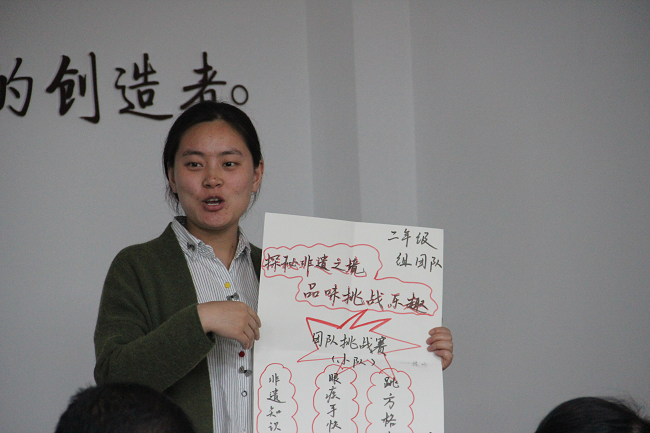 的创造者。
二年级
组团队
探秘非遗之境
品味挑战乐趣
团队挑战赛
(小队)
非遗知识
眼疾手快
跳方格